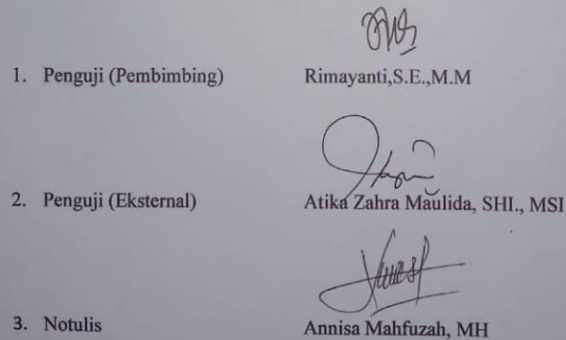 1. Penguji (Pembimbing) Rimayanti,S.E.,M.M
2. Penguji (Eksternal) Atika Zahra Maulida, SHI., MSI
3. Notulis Annisa Mahfuzah, MH